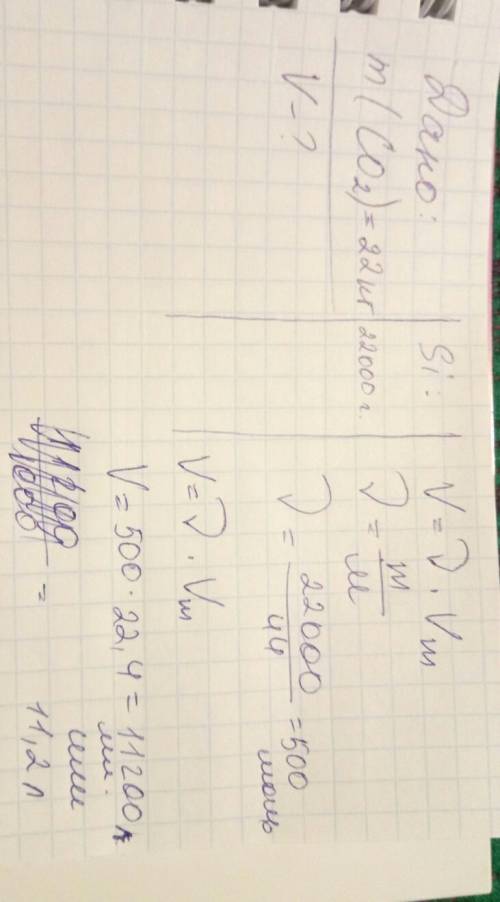 Дано:
m(CO₂)=22кг
V-?
Si:
22000г.
V=ν·Vm
ν=m/M
ν=22000/44=500 моль
V=ν·Vm
V=500·22,4=11200л
мл.
или
= 11,2л